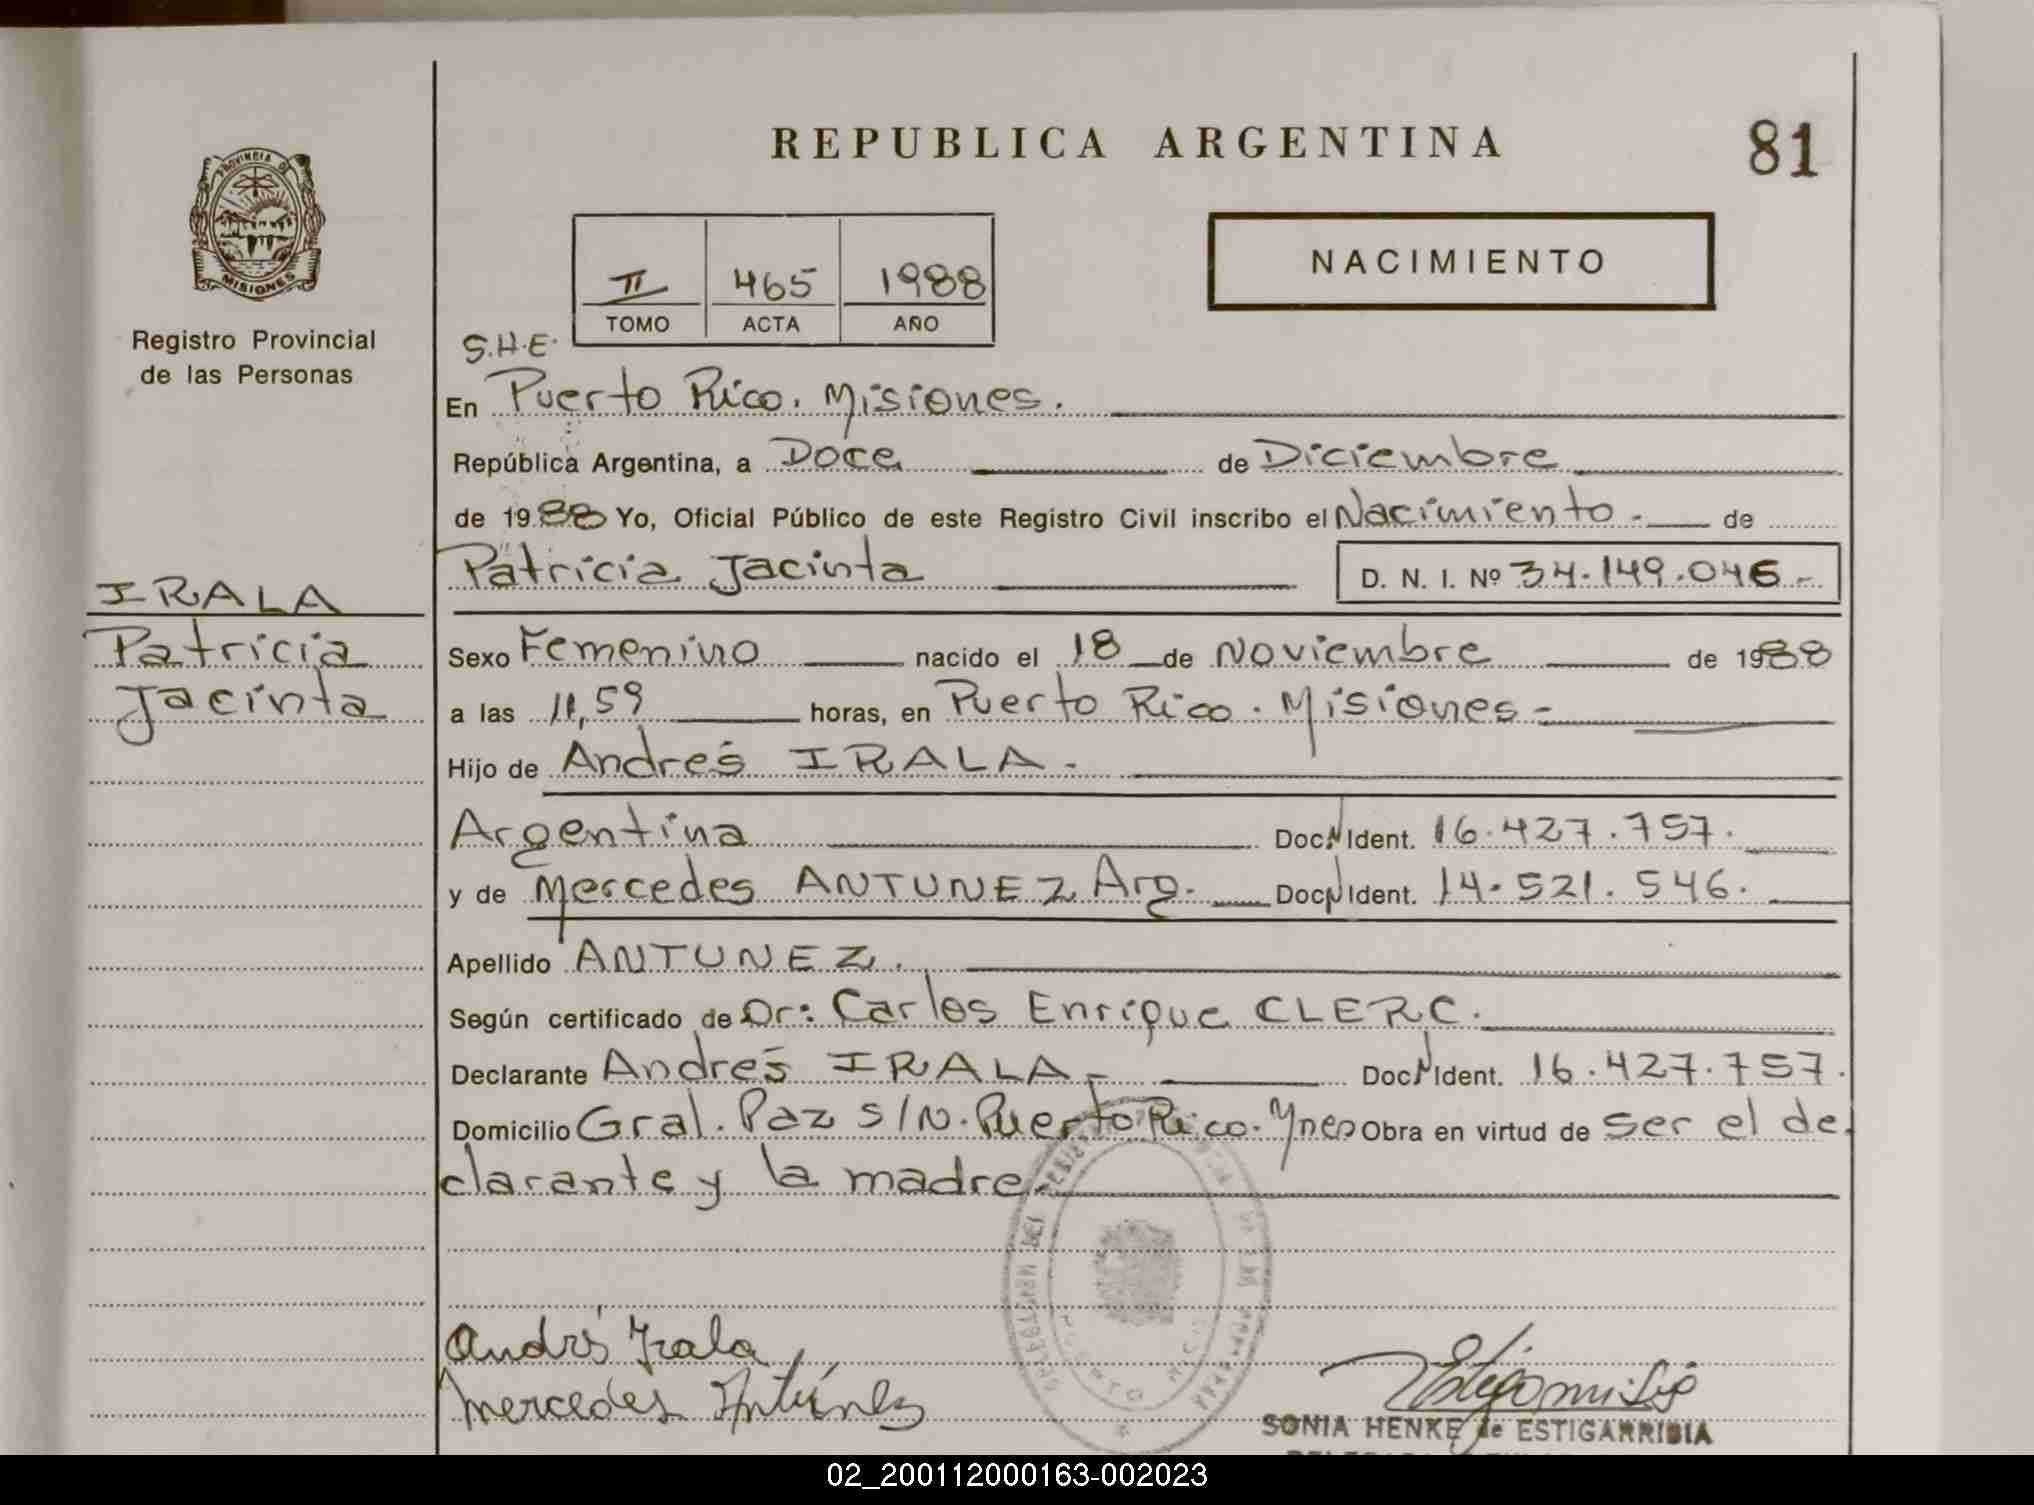 REPUBLICA ARGENTINA
81
PROVINCIA DE
MISIONES
Registro Provincial
de las Personas
II 465 1988
TOMO ACTA AÑO
NACIMIENTO
S.H.E.
En Puerto Rico. Misiones.
República Argentina, a Doce de Diciembre
de 1988 Yo, Oficial Público de este Registro Civil inscribo el Nacimiento - de
Patricia Jacinta D. N. I. Nº 34.149.046.-
IRALA
Patricia
Jacinta
Sexo Femenino nacido el 18 de Noviembre de 1988
a las 11,59 horas, en Puerto Rico. Misiones-
Hijo de Andrés IRALA.
Argentina Doc. N Ident. 16.427.757.
y de Mercedes ANTUNEZ Arg. Doc. N Ident. 14.521.546.
Apellido ANTUNEZ.
Según certificado de Dr: Carlos Enrique CLERC.
Declarante Andrés IRALA.- Doc. N Ident. 16.427.757.
Domicilio Gral. Paz S/N. Puerto Rico. Mnes Obra en virtud de ser el de
clarante y la madre.-
PUERTO RICO
Andrés Irala
Mercedes Antúnez
SONIA HENKE de ESTIGARRIBIA
02_200112000163-002023